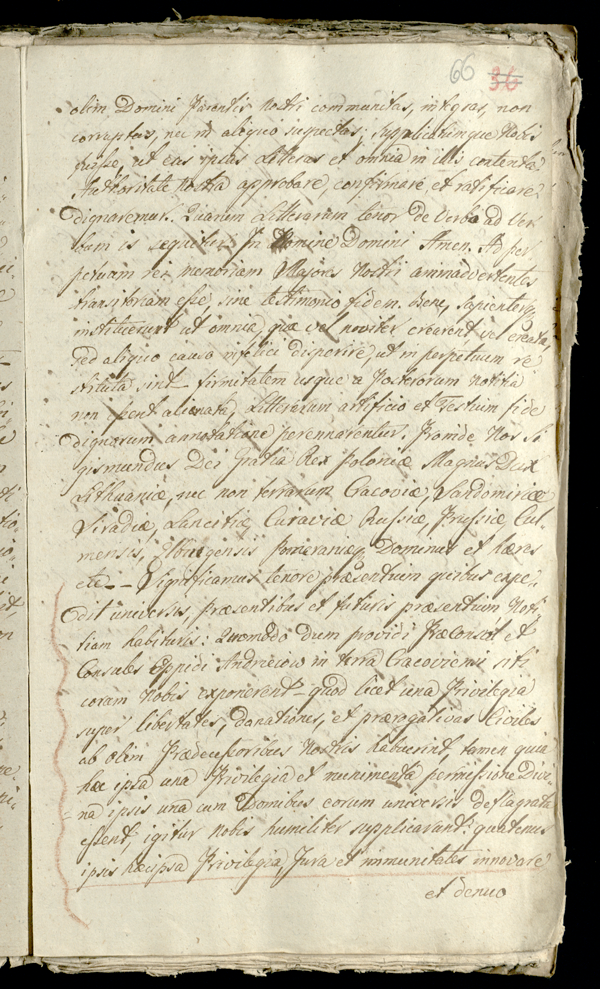 66 36
olim Domini Parentis Nostri communitas, integras, non
corruptas, nec in aliquo suspectas; Supplicatumque Nobis
fuisse, ut eas ipsas Litteras et omnia in illis contenta
Authoritate Nostra approbare, confirmare et ratificare
dignaremur. Quarum Litterarum tenor de Verbo ad Ver-
bum is sequitur. In Nomine Domini Amen. Ad per-
petuam rei memoriam Majores Nostri animadvertentes
transitoriam esse, sine testimonio fidem. Bene, sapienterq;
instituerunt ut omnia, quæ vel noviter crearent, vel creata,
sed aliquo causo infelici disperire, ut in perpetuum re
stituta sint firmitatem usque a Posterorum notitia
non essent alienata, Litterarum artificio et Testium fide
dignorum annotatione perennarentur. Proinde Nos Si
gismundus Dei Gratia Rex Poloniæ Magnus Dux
Lithuaniæ, nec non terrarum Cracoviæ, Sandomiriæ
Siradiæ, Lanciciæ Cujaviæ Russiæ, Prussiæ Cul-
mensis, Elbingensis Pomeraniæq; Dominus et hæres
etc. – Significamus tenore præsentium quibus expe-
dit universis, præsentibus et futuris præsentium Noti-
tiam habituris: Quomodo dum providi Præconsul et
Consules Oppidi Andrzeiow in terra Cracoviensi siti
coram Nobis exponerent – quod licet una Privilegia
super libertates, donationes, et prærogativas Civiles
ab olim Prædecessoribus Nostris habuerint, tamen quia
hæc ipsa una Privilegia et munimenta permissione Divi-
na ipsis una cum Domibus eorum universis deflagrata
essent, igitur nobis humiliter supplicarunt: quatenus
ipsis hæc ipsa Privilegia, Jura et immunitates innovare
et denuo